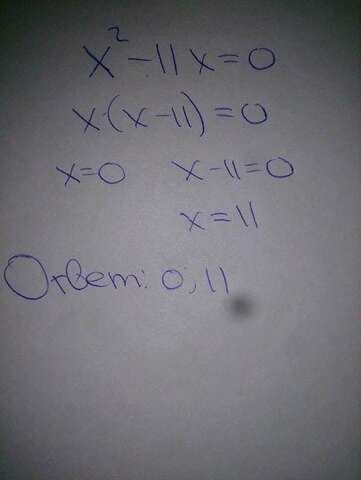 x² - 11x = 0
x·(x - 11) = 0
x = 0 x - 11 = 0
x = 11
Ответ: 0; 11